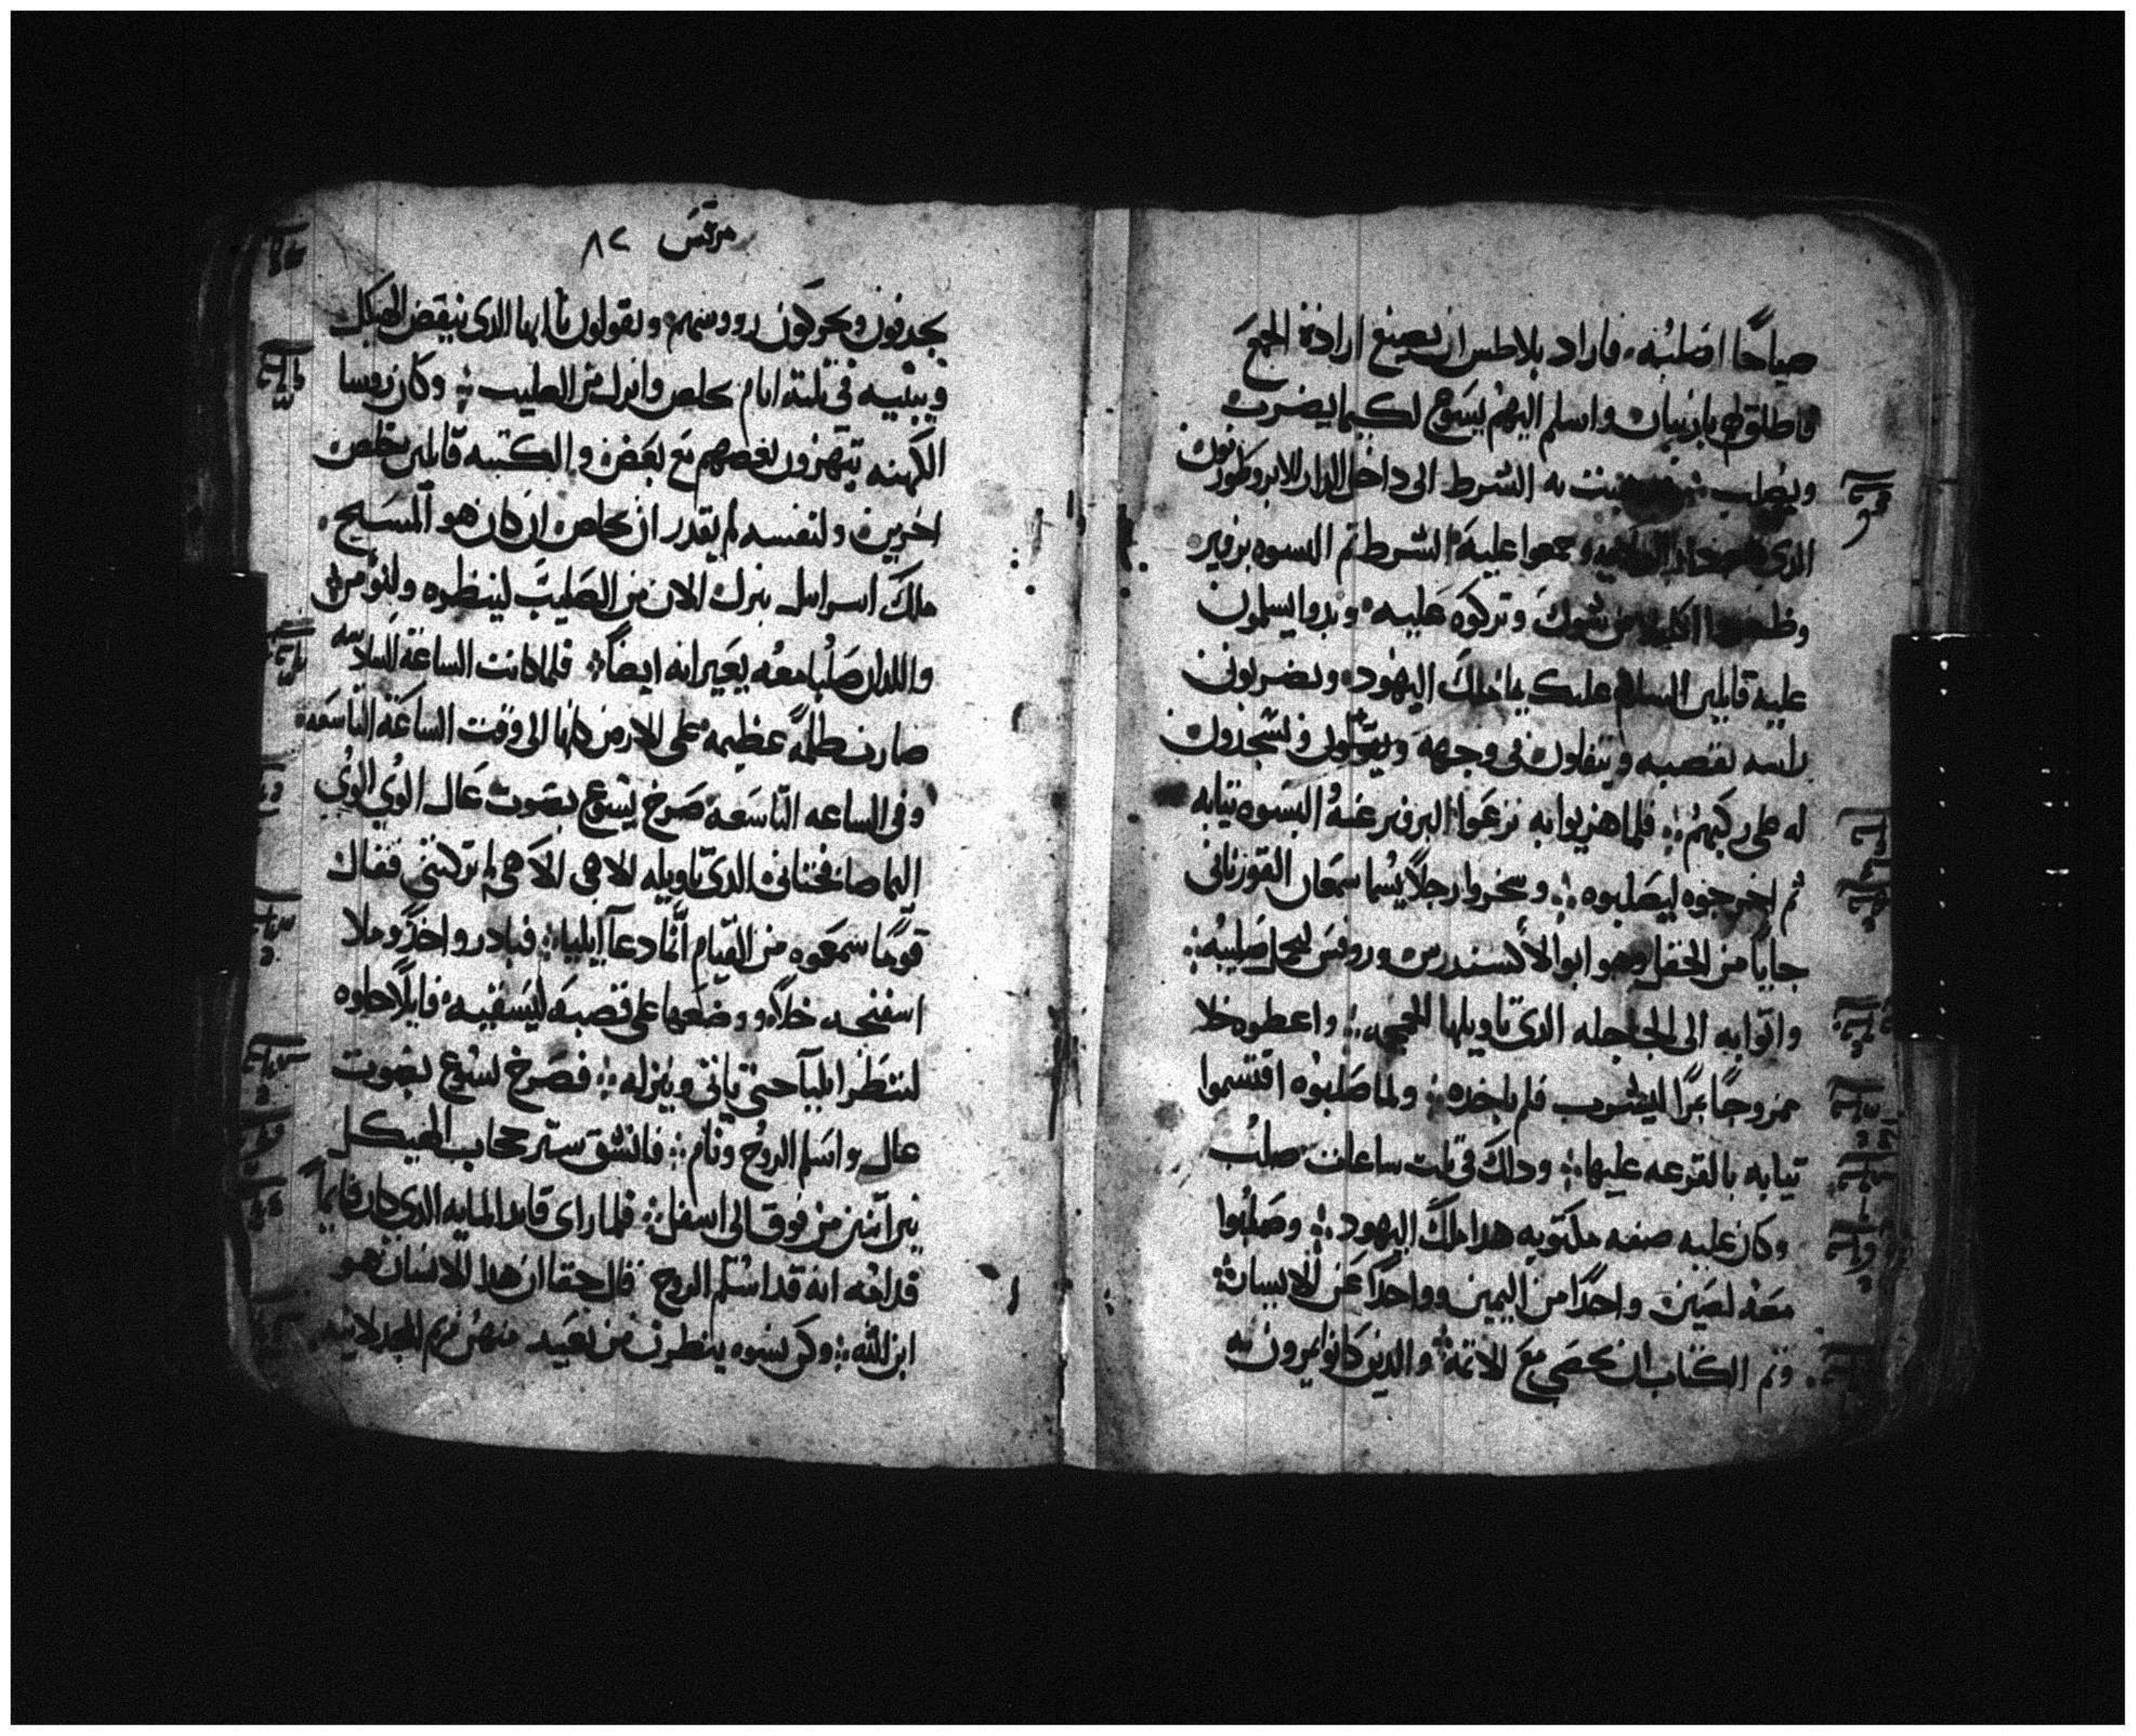 صياحًا اصلبه، فاراد بلاطس ان يصنع ارادة الجمع
فاطلق لهم باربنان واسلم اليهم يسوع لكيما يضرب
ويصلب به الشرط الى داخل الدار الابروطورنون
الدى وجمعوا عليه الشرط تم البسوه برفير
من شوك وتركوه عليه، وبدوا يسلمون
عليه قايلين السلام عليك يا ملك اليهود، ويضربون
راسه بقصبه ويتفلون فى وجهه ويسجدون
له على ركبهم فلما هزيوا به نزعوا البرفير عنه البسوه تيابه
تم اخرجوه ليصلبوه وسخروا رجلاً يسما سمعان القوريانى
جايًا من الحقل وهو ابو الاكسندرس وروفس ليحمل صليبه
واتوا به الى الجاجله الدى تاويلها الجمجمه واعطوه خلا
ممزوجًا مرًا ليشرب فلم ياخده ولما صلبوه اقتسموا
تيابه بالقرعه عليها ودلك فى تلت ساعات صلب
وكان عليه صفه مكتوبه هدا ملك اليهود وصلبوا
معه لصين واحدًا من اليمين وواحدًا عن الايسار
وتم الكتاب انه يحصى مع الاتمة والدين كانوا يمرون به
مرقس ٨٢
يجدفون ويحركون رووسهم، ويقولون يا ايها الدى ينقض الهيكل
ويبنيه فى تلته ايام خلص وانزل من الصليب وكان روسا
الكهنه يتهزون بعضهم مع بعض والكتبه قايلين خلص
اخرين ولنفسه لم يقدر ان يخلص ان كان هو المسيح
ملك اسراييل ينزل الان من الصليب لينظره ولنومن
واللدان صلبا معه يعيرانه ايضًا فلما كانت الساعة السادسه
صارت ظلمة عظيمه على الارض كلها الى وقت الساعة التاسعه
وفى الساعه التاسعه صرخ يسوع بصوت عال الوى الوى
اليما صافختانى الدى تاويله الاهى الاهى لم تركتنى فقال
قومًا سمعوه من القيام انما دعا ايليا فبادر واحدًا وملا
اسفنجه خلاً ووضعها على قصبه ليسقيه قايلاً خلوه
لننظر ايليا حتى ياتى وينزله فصرخ يسوع بصوت
عال واسلم الروح ونام فانشق ستر حجاب الهيكل
باتنين من فوق الى اسفل فلما راى قايد المايه الدى كان قايمًا
قدامه انه قد اسلم الروح قال حقا ان هدا الانسان هو
ابن الله وكن نسوه ينظرن من بعيد منهن مريم المجدلانيه